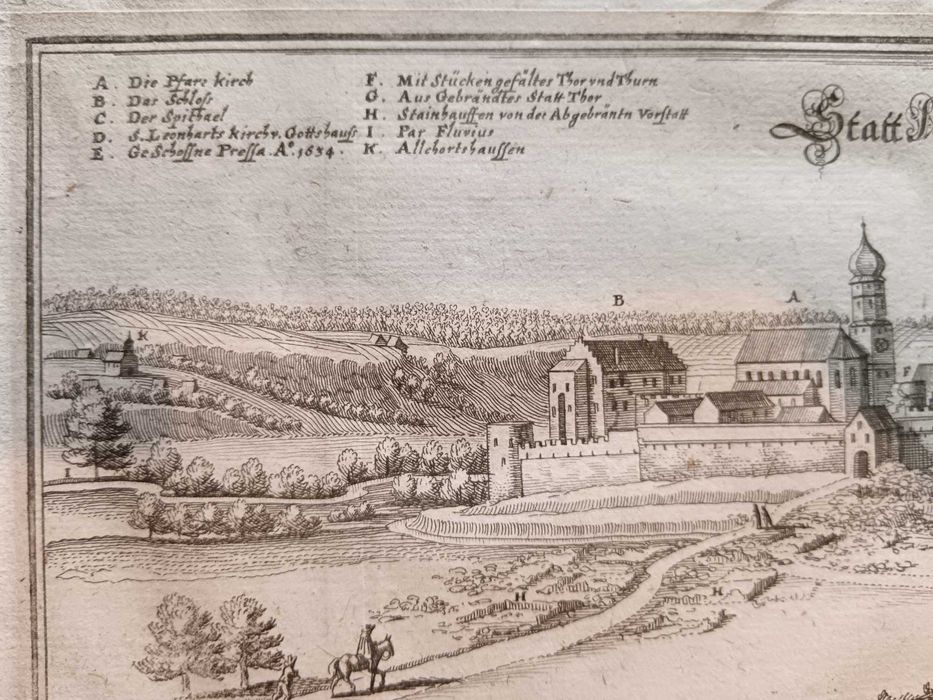 A. Die Pfarr kirch
B. Das Schloss
C. Der Spithael
D. S. Leonharts kirch v. Gottshauss
E. GeSchossne Pressa. Aº. 1634.
F. Mit Stücken gefältes Thor vnd Thurn
G. Aus Gebrändtes Statt Thor
H. Stainhauffen von der Abgebräntn Vorstatt
I. Par Fluvius
K. Allchortshaussen
Statt
B
A
K
I
H
H